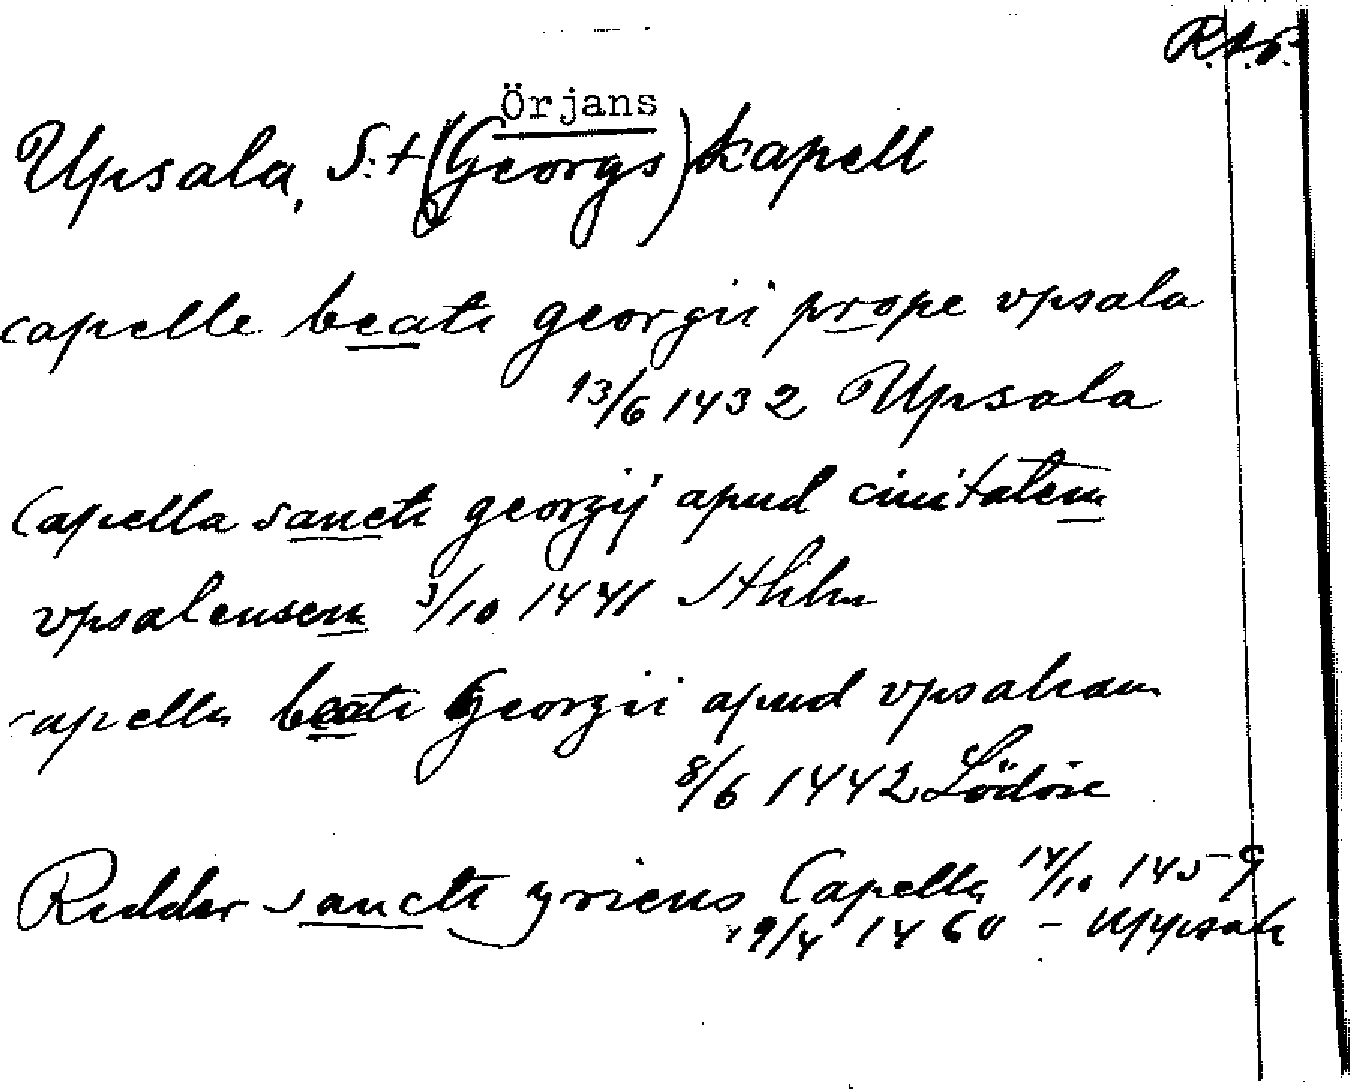 R.A.P.
Örjans
Upsala, S:t (Georgs) kapell
capelle beati georgii prope vpsala
13/6 1432 Upsala
Capella sancti georgij apud ciuitatem
vpsalensem 3/10 1441 Sthlm
capella beati Georgii apud vpsaliam
8/6 1442 Lödöse
Ridder sancti yriens Capella 14/10 1459
19/4 1460 - Uppsala